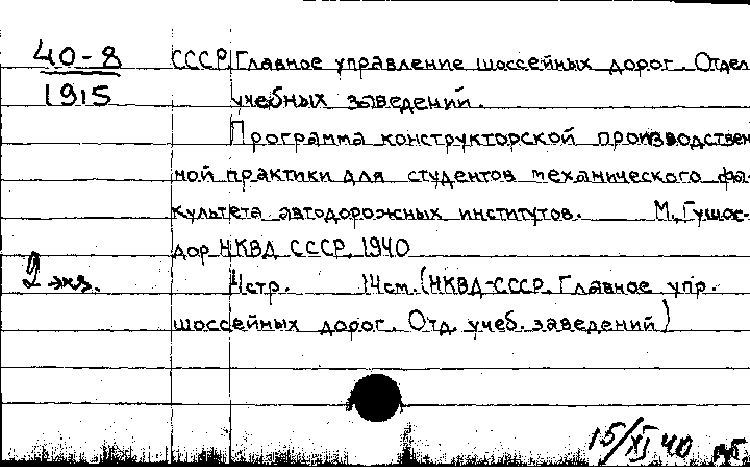 40-8 СССР. Главное управление шоссейных дорог. Отдел
1915 учебных заведений.
Программа конструкторской производствен
ной практики для студентов механического фа-
культета автодорожных институтов. М., Гушос-
дор НКВД СССР, 1940
2 экз. 4стр. 14см. (НКВД-СССР. Главное упр.
шоссейных дорог. Отд. учеб. заведений)
15/XI 40